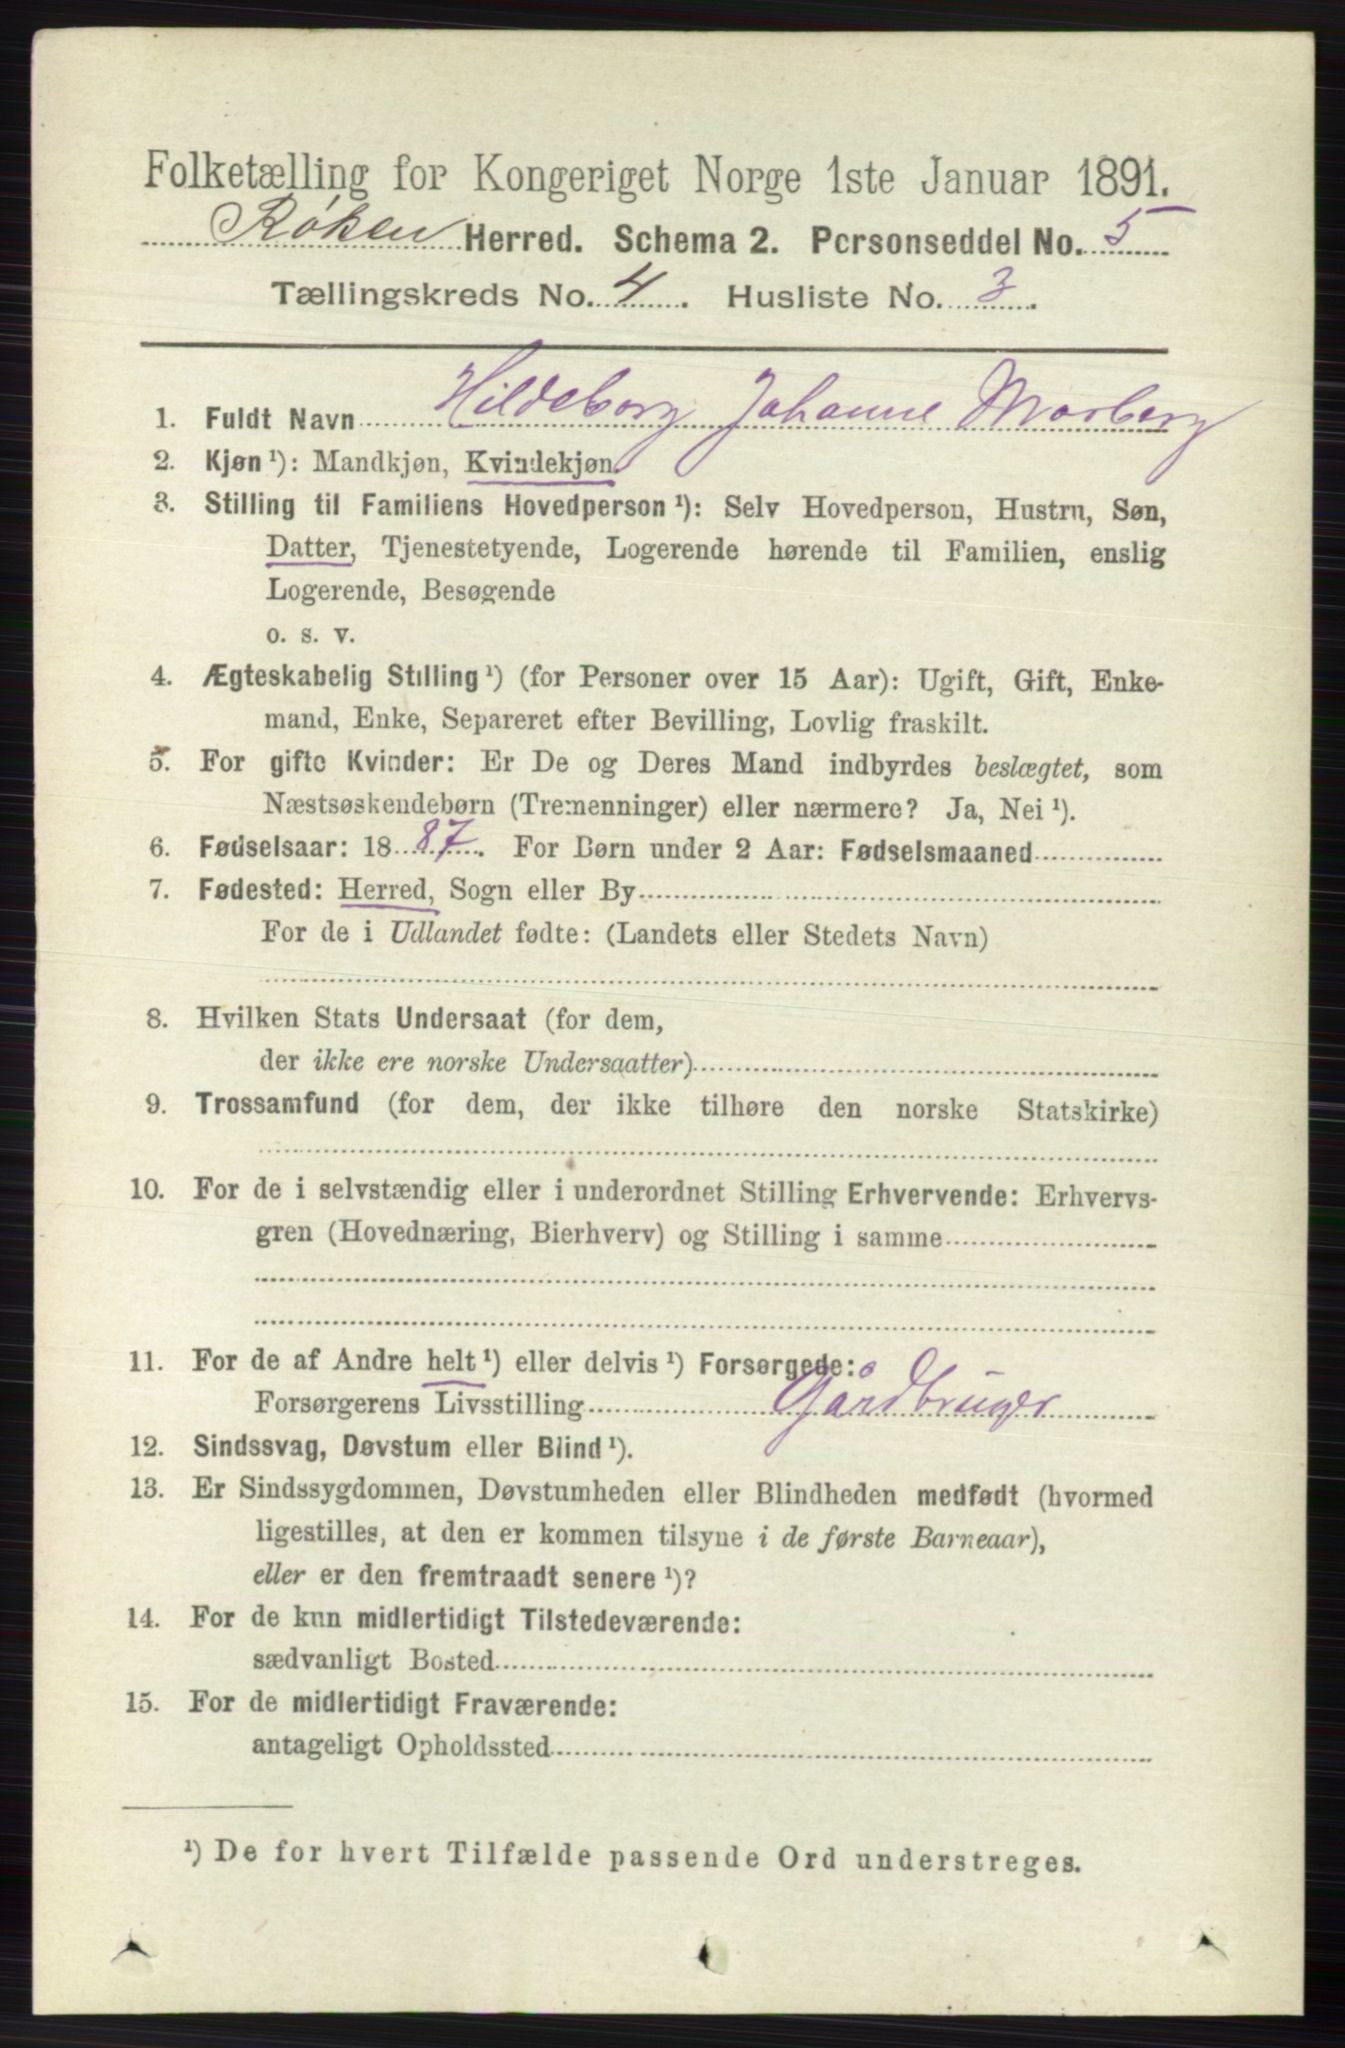 Folketælling for Kongeriget Norge 1ste Januar 1891.
Røken Herred. Schema 2. Personseddel No. 5
Tællingskreds No. 4. Husliste No. 3.
1. Fuldt Navn Hildeborg Johanne Morberg
2. Kjøn ¹): Mandkjøn, Kvindekjøn.
3. Stilling til Familiens Hovedperson ¹): Selv Hovedperson, Hustru, Søn,
Datter, Tjenestetyende, Logerende hørende til Familien, enslig
Logerende, Besøgende
o. s. v.
4. Ægteskabelig Stilling ¹) (for Personer over 15 Aar): Ugift, Gift, Enke-
mand, Enke, Separeret efter Bevilling, Lovlig fraskilt.
5. For gifte Kvinder: Er De og Deres Mand indbyrdes beslægtet, som
Næstsøskendebørn (Tremenninger) eller nærmere? Ja, Nei ¹).
6. Fødselsaar: 1887. For Børn under 2 Aar: Fødselsmaaned
7. Fødested: Herred, Sogn eller By
For de i Udlandet fødte: (Landets eller Stedets Navn)
8. Hvilken Stats Undersaat (for dem,
der ikke ere norske Undersaatter)
9. Trossamfund (for dem, der ikke tilhøre den norske Statskirke)
10. For de i selvstændig eller i underordnet Stilling Erhvervende: Erhvervs-
gren (Hovednæring, Bierhverv) og Stilling i samme
11. For de af Andre helt ¹) eller delvis ¹) Forsørgede:
Forsørgerens Livsstilling Gårdbruger
12. Sindssvag, Døvstum eller Blind ¹).
13. Er Sindssygdommen, Døvstumheden eller Blindheden medfødt (hvormed
ligestilles, at den er kommen tilsyne i de første Barneaar),
eller er den fremtraadt senere ¹)?
14. For de kun midlertidigt Tilstedeværende:
sædvanligt Bosted
15. For de midlertidigt Fraværende:
antageligt Opholdssted
¹) De for hvert Tilfælde passende Ord understreges.